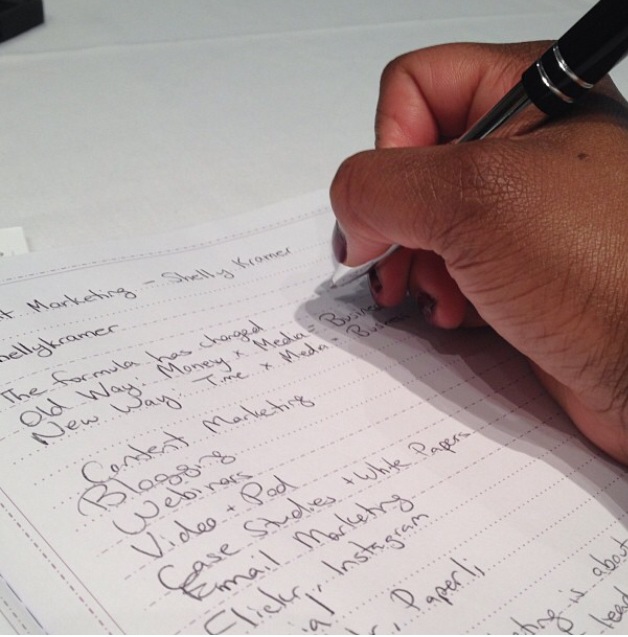 t Marketing - Shelly Kramer
hellykramer
The formula has changed
Old Way: Money x Media = Business
New Way: Time x Media = Business
Content Marketing
Blogging
Webinars
Video + Pod
Case Studies + White Papers
Email Marketing
Flickr, Instagram
Paperli
ting is about
lead